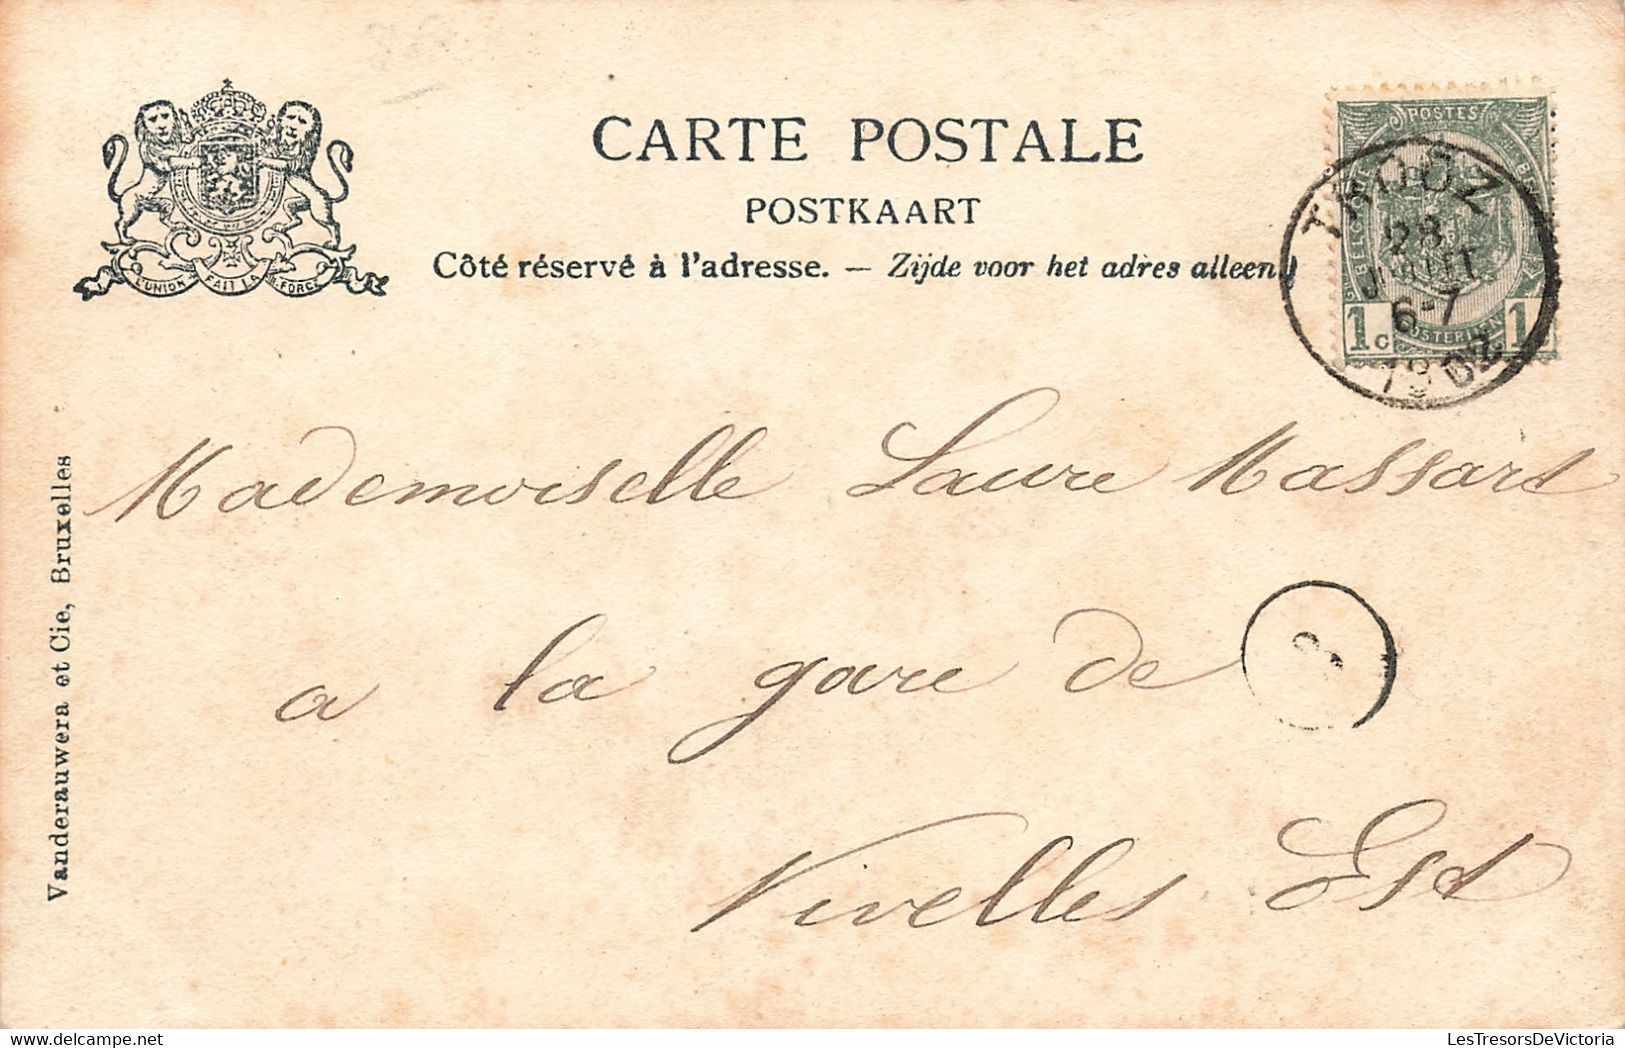 CARTE POSTALE
POSTKAART
Côté réservé à l'adresse. — Zijde voor het adres alleen.
L'UNION FAIT LA FORCE
POSTES
1c 1
TROOZ
28
JUILLET
6-7
1902
Mademoiselle Laure Massart
a la gare de
Nivelles Est
Vanderauwera et Cie, Bruxelles
LesTresorsDeVictoria